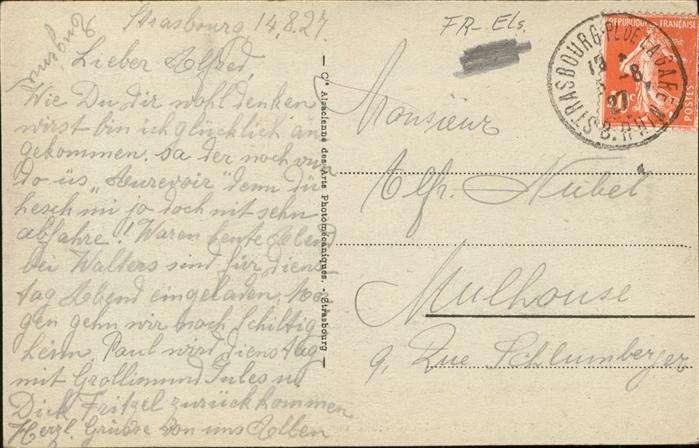 Strasbourg 14.8.27.
Lieber Alfred,
Wie Du dir wohl denken
wirst bin ich glücklich an
gekommen. Sa der noch
do üs „Aurevoir" denn dü
hesch mi jo doch nit sehn
abfahre! Waren heute Abend
bei Walters sind für Diens-
tag Abend eingeladen. Mor
gen gehn wir nach Schiltig
heim, Paul wird Dienstag
mit Grollimund Jules
Fritzel zurückkommen
Herzl. Grüsse von uns Allen
Cie Alsacienne des Arts Photomécaniques. - Strasbourg
FR-Els.
Monsieur
Alfr. Nubel
Mulhouse
9, Rue Schlumberger
RÉPUBLIQUE FRANÇAISE
POSTES
STRASBOURG-PL. DE LA GARE
B. RHIN
27